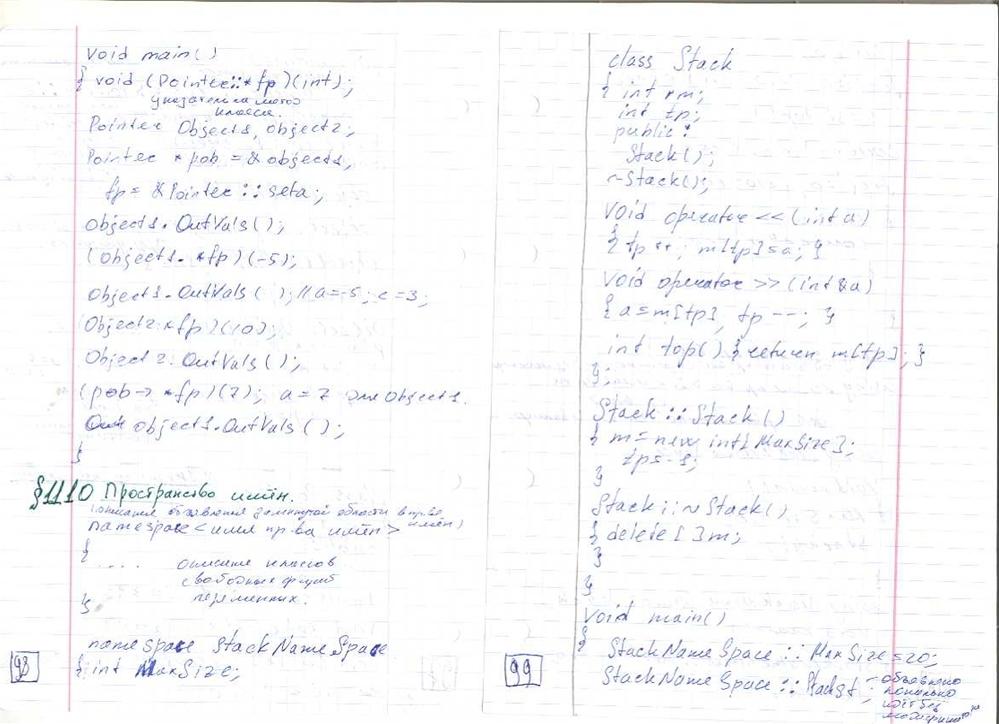 void main()
{ void (Pointer::*fp)(int);
указатель на метод
класса.
Pointer Object1, object2;
Pointer * pob = & object1,
fp = & Pointer :: seta;
Object1. OutVals();
(object1. *fp)(-5);
Object1. OutVals( ); // a=-5; c=3;
(Object2. *fp)(10);
Object2. OutVals();
(pob-> *fp)(7); a=7 для object1.
object1.OutVals();
}
§11.10 Пространство имён.
(описание объявления замкнутой области в пр-ве имён)
namespace <имя пр-ва имён>
{
.... описание классов
свободные функ
переменных.
}
namespace StackNameSpace
{ int MaxSize;
98
class Stack
{ int *m;
int tp;
public:
Stack();
~Stack();
void operator <<(int a)
{ tp++; m[tp]=a; }
void operator >>(int &a)
{ a=m[tp], tp--; }
int top() { return m[tp]; }
};
Stack :: Stack()
{ m=new int[MaxSize];
tp=-1;
}
Stack::~Stack()
{ delete[]m;
}
}
void main()
{ StackNameSpace :: MaxSize=20;
StackNameSpace :: Stack st; - объявлено
поскольку
идёт без
99